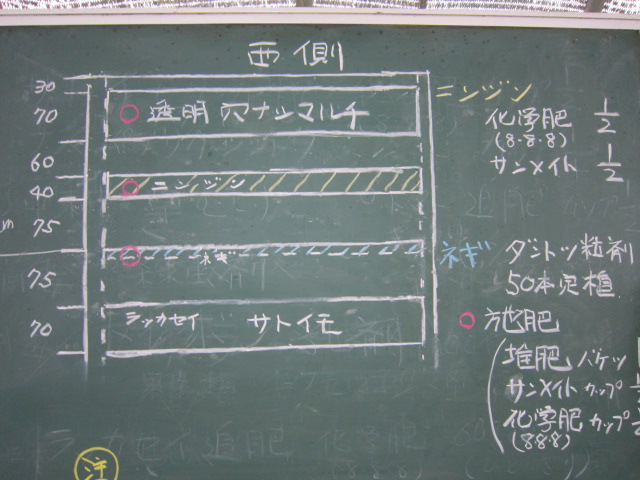 西側
30
70
60
40
75
75
70
○ 透明 穴ナシマルチ
○ ニンジン
○ ネギ
シッカセイ サトイモ
ニンジン
化学肥 1/2
(8・8・8)
サンメイト 1/2
ネギ ダントツ粒剤
50本定植
○ 施肥
堆肥 バケツ
サンメイト カップ
化学肥 カップ
(8・8・8)
注